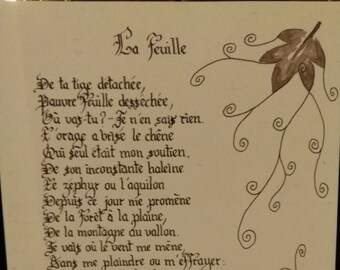 La Feuille
De ta tige detachée,
Pauvre Feuille desséchée,
Où vas tu? - Je n'en sais rien.
L'orage a brisé le chêne
Qui seul était mon soutien.
De son inconstante haleine
Le zéphyr ou l'aquilon
Depuis ce jour me promène
De la Forêt à la plaine,
De la montagne au vallon.
Je vais où le vent me mène,
Sans me plaindre ou m'effrayer: